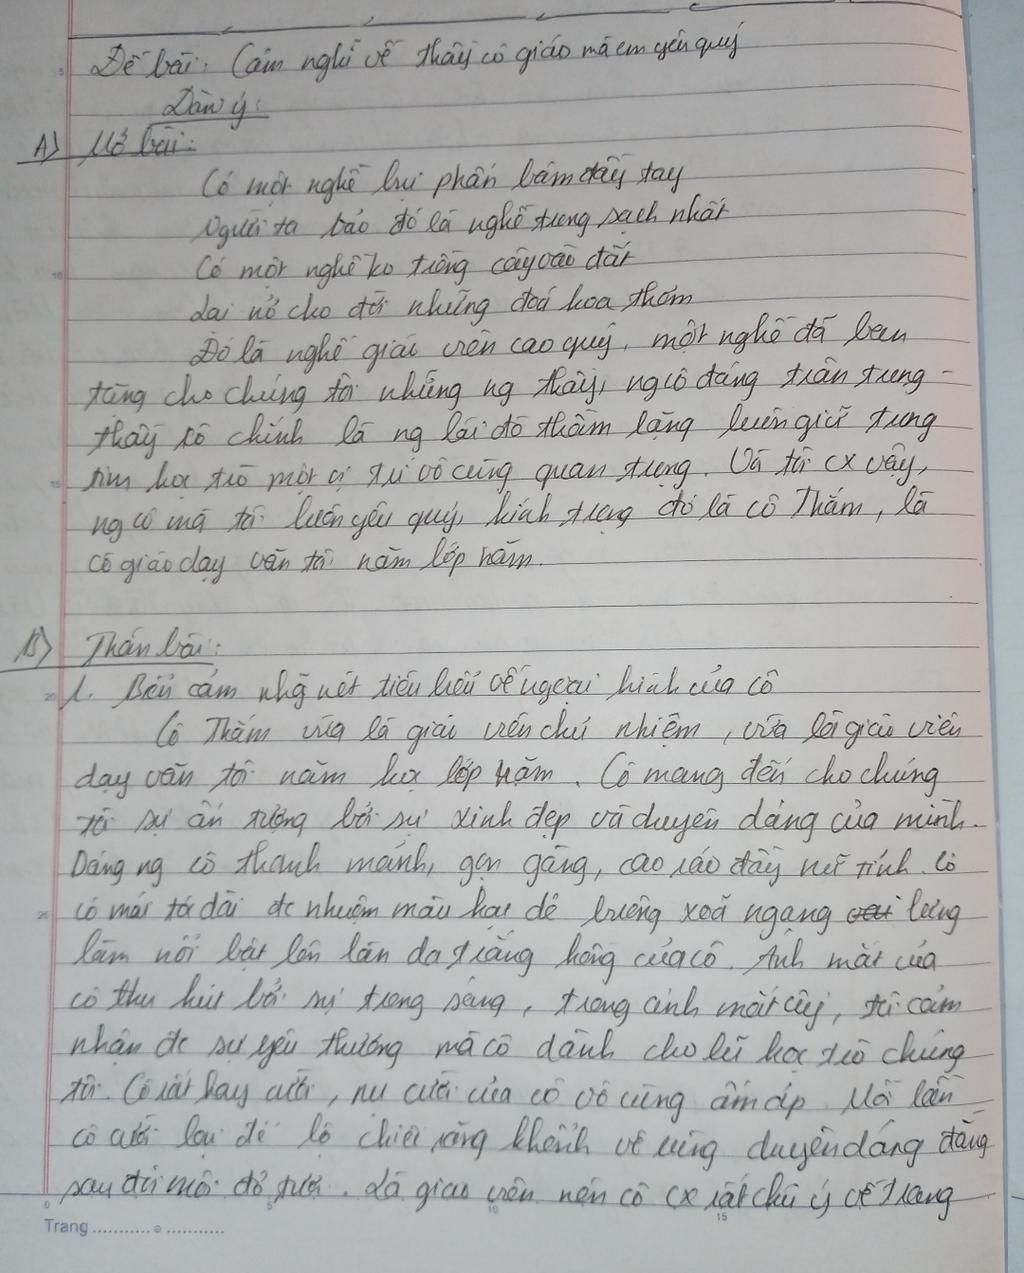 Đề bài: Cảm nghĩ về thầy cô giáo mà em yêu quý
Dàn ý:
A) Mở bài:
Có một nghề bụi phấn bám đầy tay
Người ta bảo đó là nghề trong sạch nhất
Có một nghề ko trồng cây vào đất
Lại nở cho đời những đoá hoa thơm
Đó là nghề giáo viên cao quý, một nghề đã ban
tặng cho chúng tôi những ng thầy, ng cô đáng trân trọng -
thầy cô chính là ng lái đò thầm lặng luôn giữ trong
tim học trò một vị trí vô cùng quan trọng. Và tôi cx vậy,
ng cô mà tôi luôn yêu quý, kính trọng đó là cô Thắm, là
cô giáo dạy văn tôi năm lớp năm.
B) Thân bài:
1. Biểu cảm nhg nét tiêu biểu về ngoại hình của cô
Cô Thắm vừa là giáo viên chủ nhiệm, vừa là giáo viên
dạy văn tôi năm học lớp năm. Cô mang đến cho chúng
tôi sự ấn tượng bởi sự xinh đẹp và duyên dáng của mình.
Dáng ng cô thanh mảnh, gọn gàng, cao ráo đầy nữ tính. Cô
có mái tóc dài đc nhuộm màu hạt dẻ buông xoã ngang lưng
làm nổi bật lên làn da trắng hồng của cô. Ánh mắt của
cô thu hút bởi sự trong sáng, trong ánh mắt ấy, tôi cảm
nhận đc sự yêu thương mà cô dành cho lũ học trò chúng
tôi. Cô rất hay cười, nụ cười của cô vô cùng ấm áp. Mỗi lần
cô cười lại để lộ chiếc răng khểnh vô cùng duyên dáng đằng
sau đôi môi đỏ tươi. Là giáo viên nên cô cx rất chú ý về trang
Trang